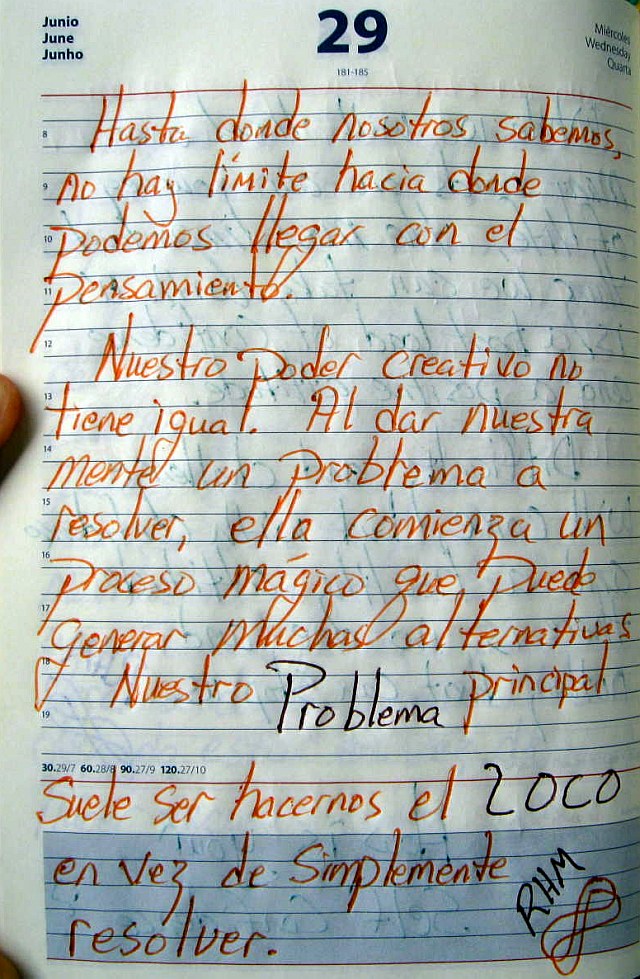 Junio
June
Junho
29
181-185
Miércoles
Wednesday
Quarta
8
Hasta donde nosotros sabemos,
9
no hay límite hacia donde
10
podemos llegar con el
11
pensamiento.
12
Nuestro poder creativo no
13
tiene igual. Al dar nuestra
14
mente un problema a
15
resolver, ella comienza un
16
proceso mágico que puede
17
generar muchas alternativas
18
Nuestro Problema principal
19
30.29/7 60.28/8 90.27/9 120.27/10
Suele ser hacernos el LOCO
en vez de simplemente
resolver.
RHM